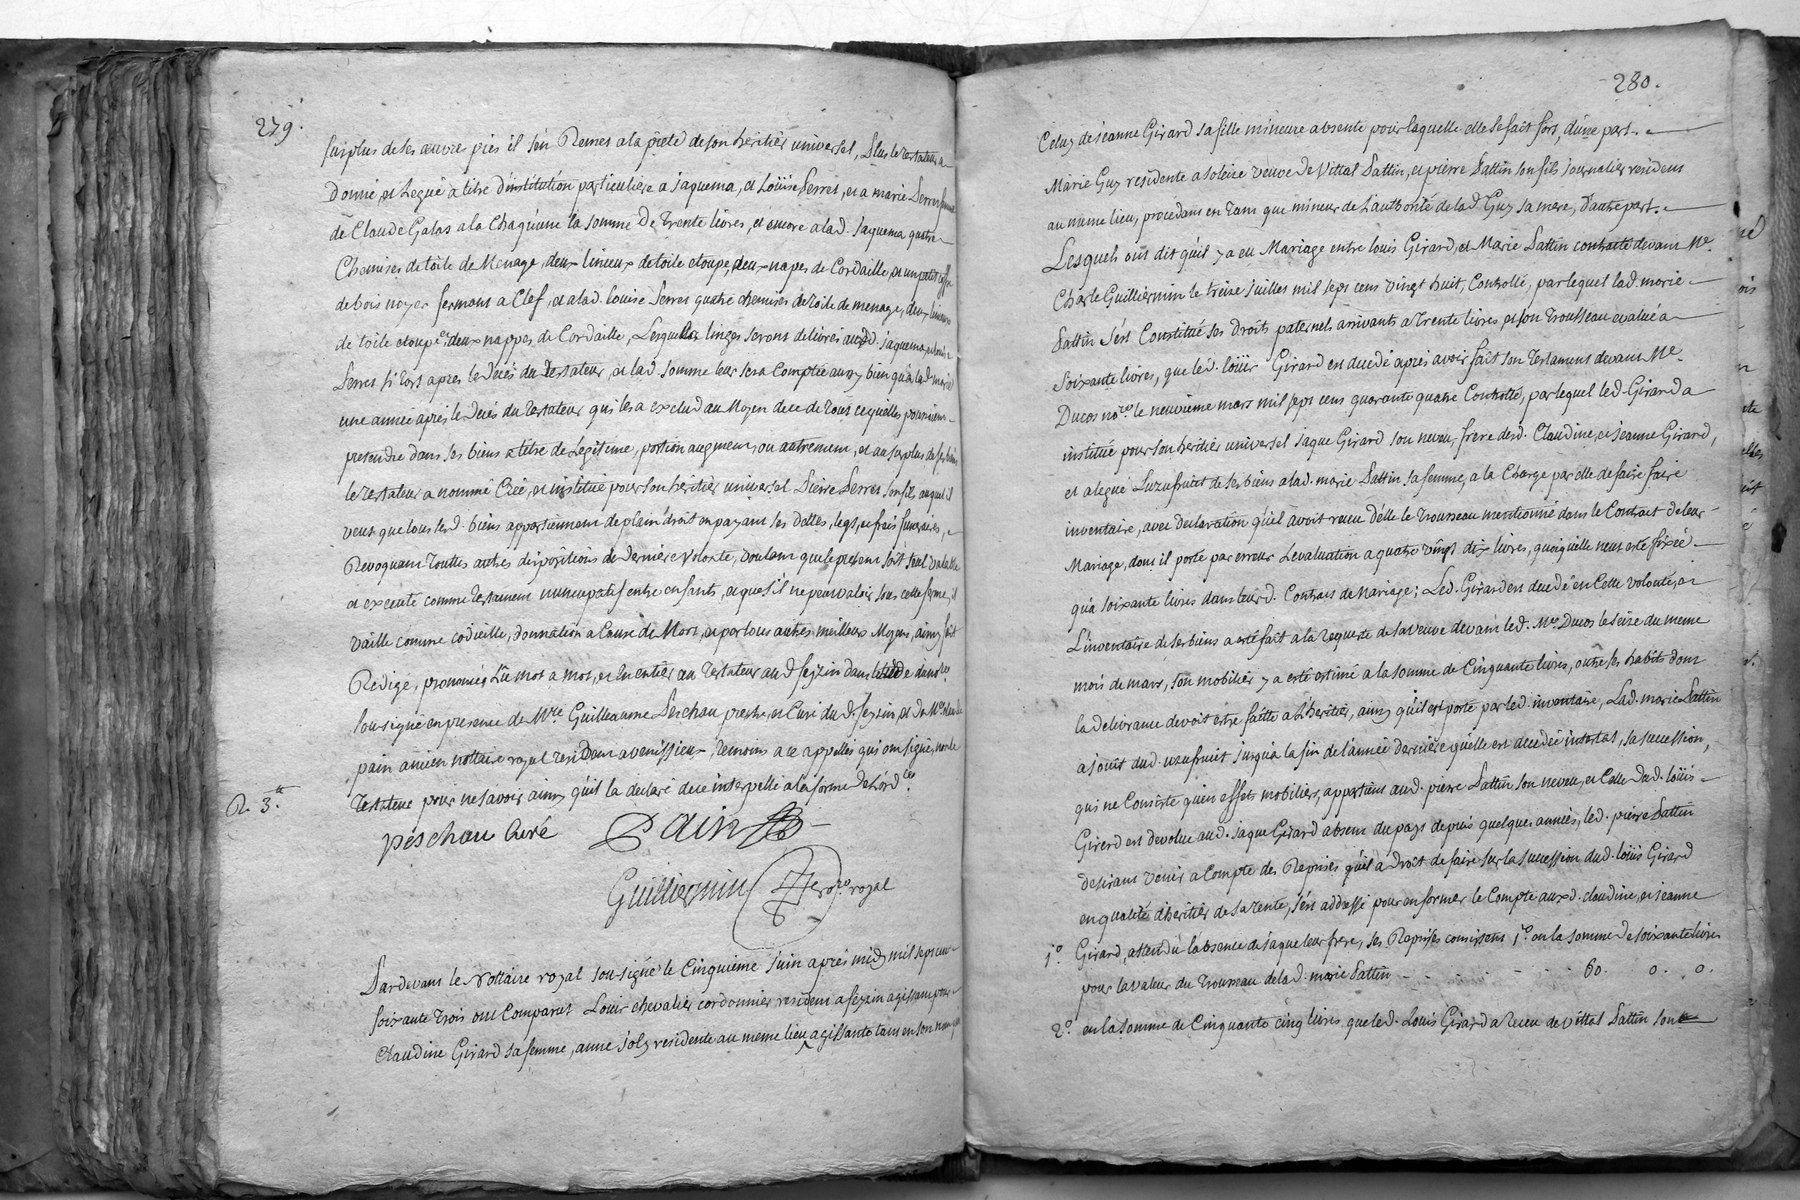 279.
surplus de ses œuvre pies il s'en Remet a la pieté de son héritier universel, Plus le testateur a
donné, et Legué a titre d'institution particulière a Jaquema, et Loüise Serret, et a marie Serret femme
de Claude Galas a la Chaqu'une la somme De trente livres, et encore a lad. Jaquema quatre
Chemises de toile de Menage, deux linceux de toile etoupe, deux napes de Cordaille, et un petit coffre
de bois noyer fermant a Clef, et a lad. louise Serret quatre chemises de toile de menage, deux linceux
de toile etoupe, et deux nappes de Cordaille, Lesquelles linges seront delivrés auxd. Jaquema, et louise
Serret si tost apres le Decés du testateur, et lad. somme leur sera Comptée aussy bien qu'a lad. marie
une année apres le Decés du testateur qui les a exclud au Moyen de ce de tout ce qu'elles pourroient
pretendre dans ses biens a titre de Légitime, portion augment, ou autrement, et au surplus de ses biens
le testateur a nommé Créé, et institué pour son héritier universel Pierre Serret son fils auquel il
veut que tous sesd. biens appartiennent de plein droit en payant ses dettes, legs, et frais funeraires,
Revoquant toutes autres dispositions de Derniere volonté, voulant que le present soit seul valable
et executé comme testament nuncupatif entre enfants, et que s'il ne peut valoir sous cette forme, il
vaille comme codicille, donnation a Cause de Mort, et par tous autres meilleurs Moyens, ainsy fait
Redigé, prononcé, Lû mot a mot, et en entier au testateur aud. feyzin dans
soussigné en presence de Mre. Guilleaume Peschau prestre, et Curé dud. feyzin, et de Me.
pain ancien nottaire royal residant a venissieux temoins a ce appellés qui ont signé, non le
testateur pour ne savoir ainsy qu'il la declaré de ce interpellé a la forme de L'ord.ce
R. 3.tt
péschau Curé Pain
Guilliermin No.re royal
Pardevant le Nottaire royal soussigné le Cinquieme Juin après midy mil sept cent
soixante trois ont Comparut Louis chevalier cordonnier resident a feyzin agissant pour
Claudine Girard sa femme, anne Joly residente au meme lieu agissante tant en son nom que
280.
Celuy de jeanne Girard sa fille mineure absente pour laquelle elle se fait fort, d'une part.
Marie Guy residente a solaize veuve de Vittal Pattin, et pierre Pattin son fils journalier resident
au meme lieu, procedant en tant que mineur de L'authorité de lad. Guy sa mere, d'autre part.
Lesquels ont dit qu'il y a eu Mariage entre louis Girard, et Marie Pattin contracté devant Me.
Charle Guilliermin le treize juillet mil sept cent vingt huit, Controllé, par lequel lad. marie
Pattin s'est Constitué ses droits paternels arrivants a trente livres, et son trousseau evalué a
soixante livres, que led. loüis Girard est decedé après avoir fait son testament devant Me.
Ducos no.re le neuvième mars mil sept cent quarante quatre Controllé, par lequel led. Girard a
institué pour son heritier universel jaque Girard son neveu, frère desd. Claudine, et jeanne Girard,
et a legué L'uzufruit de ses biens a lad. marie Pattin sa femme, a la Charge par elle de faire faire
inventaire, avec declaration qu'il avoit receu d'elle le trousseau mentionné dans le Contract de leur
Mariage, dont il porte par erreur L'evaluation a quatre vingt dix livres, quoiquelle n'eut esté fixée
qu'a soixante livres dans leurd. Contract de Mariage; Led. Girard est decedé en Cette volonté, et
L'inventaire de ses biens a esté fait a la requeste de sa veuve devant led. Me. Ducos le seize du meme
mois de mars, son mobilier y a esté estimé a la somme de Cinquante livres, outre ses habits dont
la delivrance devoit estre faitte a L'heritier, ainsy qu'il est porté par led. inventaire, Lad. marie Pattin
a jouit dud. uzufruit jusqu'a la fin de l'année dernière qu'elle est decedée intestat, sa succession,
qui ne Consiste qu'en effets mobiliers, appartient aud. pierre Pattin son neveu, et Celle dud. loüis
Girard est devolue aud. jaque Girard absent du pays depuis quelques années, led. pierre Pattin
desirant venir a Compte des Reprises qu'il a Droit de faire sur la succession dud. loüis Girard
en qualité d'héritier de sa tente, s'est addressé pour en former le Compte auxd. claudine, et jeanne
Girard, attendu l'absence de jaque leur frère, ses Reprises consistent 1.o en la somme de soixante livres
1.o
pour la valeur du trousseau de lad. marie Pattin - - - - 60. 0. 0.
2.o en la somme de Cinquante cinq livres que led. Louis Girard a receu de vittal Pattin son